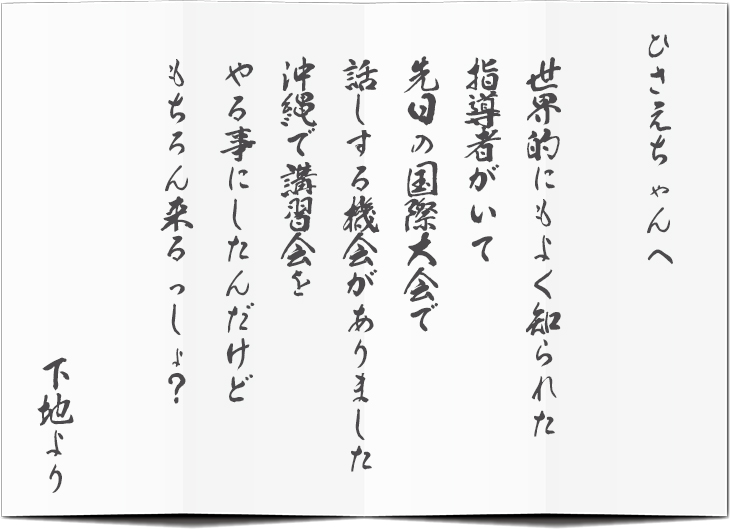 ひさえちゃんへ
世界的にもよく知られた
指導者がいて
先日の国際大会で
話しする機会がありました
沖縄で講習会を
やる事にしたんだけど
もちろん来るっしょ?
下地より